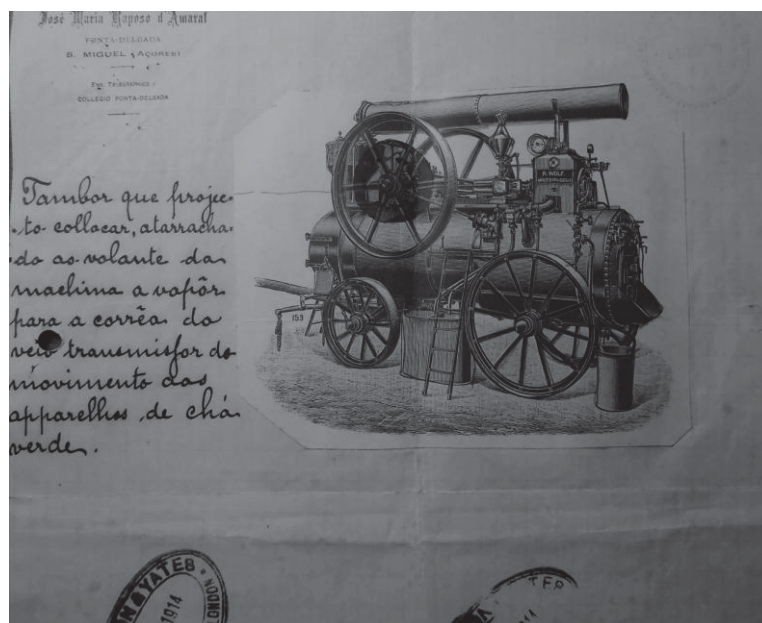 José Maria Raposo d'Amaral
PONTA-DELGADA
S. MIGUEL (AÇORES)
END. TELEGRAPHICO:
COLLEGIO PONTA-DELGADA
Tambor que projec-
-to collocar, atarracha-
-do ao volante da
machina a vapôr
para a corrêa do
veio transmissor do
movimento dos
apparelhos de chá
verde.
R. WOLF
MAGDEBURG-BUCKAU
159
N & YATES
LONDON
1914